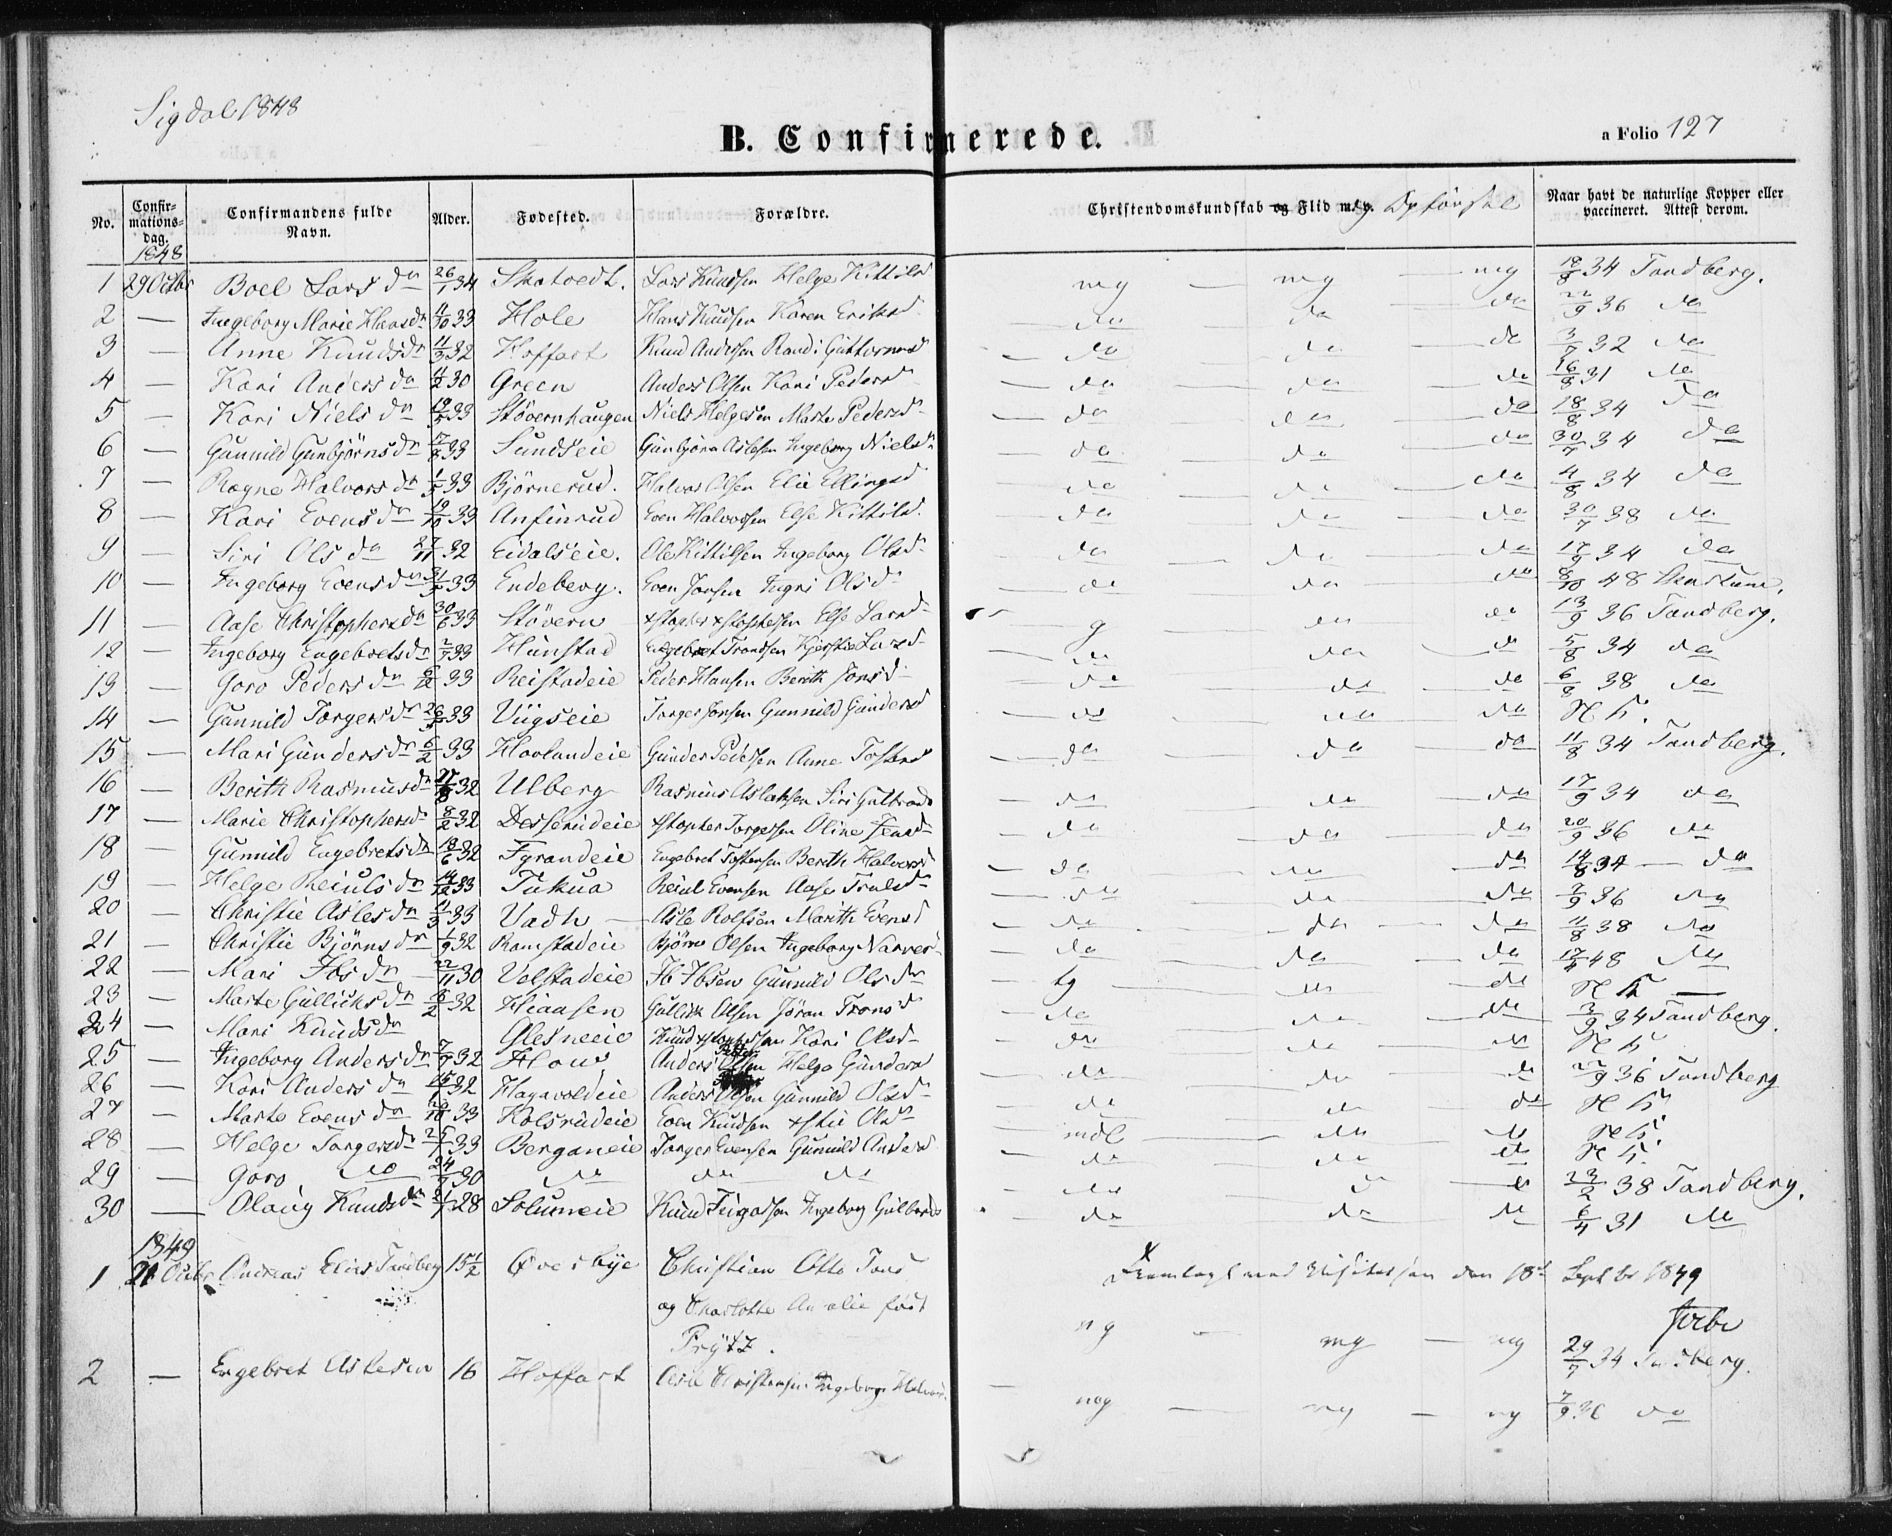 Sigdal 1848
B. Confirmerede.
a Folio 127
No. Confirmations-dag. Confirmandens fulde Navn. Alder. Fødested. Forældre. Christendomskundskab og Flid m.v. og Opførsel Naar havt de naturlige Kopper eller vaccineret. Attest derom.
1848
1 29 Octbr Boel Larsdn 26/1 34 Skatvedt. Lars Knudsen Helge Kittilsd mg — mg — mg 18/8 34 Tandberg.
2 — Ingeborg Marie Hansdn 4/10 33 Hole Hans Knudsen Karen Eriksd — do do — do 22/9 36 do
3 — Anne Knudsdn 11/9 32 Hoffart Knud Andersen Randi Guttormsd — do — do — do 3/7 32 do
4 — Kari Andersdn 4/2 30 Green Anders Olsen Kari Pedersd — do — do — do 16/8 31 do
5 — Kari Nielsdn 19/5 33 Støvernhaugen Niels Helgesen Marte Pedersd — do — do — do 18/8 34 do
6 — Gunnild Gunbjørnsdn 17/8 33 Sundseie Gunbjørn Aslesen Ingeborg Nielsdn — do — do — do 30/7 34 do
7 — Ragne Halvorsdn 1/5 33 Bjørnerud. Halvor Olsen Elie Ellingsd — do — do — do 4/8 34 do
8 — Kari Evensdn 19/10 33 Anfinrud Even Halvorsen Else Kittilsd — do — do — do 30/7 38 do
9 — Siri Olsdn 27/11 32 Eidalseie. Ole Kittilsen Ingeborg Olsd — do — do — do 17/9 34 do
10 — Ingeborg Evensdn 31/5 33 Endeberg. Even Jonsen Ingri Olsd — do — do — do 8/10 48
11 — Aase Christophersdn 30/6 33 Støvern xstopher xstophersen Else Larsd — g — do — do 13/9 36 Tandberg.
12 — Ingeborg Engebretsdn 2/7 33 Hunstad Engebret Trondsen Kjerstie Larsd — do — do — do 5/8 34 do
13 — Goro Pedersdn 6/12 33 Reistadeie Peder Hansen Berith Jonsd — do — do — do 6/8 38 do
14 — Gunnild Torgersdn 26/5 33 Viigseie Torger Jonsen Gunnild Gundersd — do — do — do N K.
15 — Mari Gundersdn 6/2 33 Hovlandeie Gunder Pedersen Anne Tostensd — do — do — do 11/8 34 Tandberg.
16 — Berith Rasmusdn 27/8 32 Ulberg Rasmus Aslaksen Siri Gulbrands — do — do — do 17/9 34 do
17 — Marie Christophersd 8/2 32 Desserudeie xstopher Torgersen Oline — do — do — do 20/9 36 do
18 — Gunnild Engebretsdn 18/6 32 Fyrandeie Engebret Tostensen Berith Halvorsd — do — do — do 14/8 34 — do
19 — Helge Reiulsdn 14/12 33 Tukua Reiul Evensen Aase Trulsdn — do — do — do 2/9 36 do
20 — Christie Aslesdn 11/3 33 Vadh — Asle Rolfsen Marith Evensd — do — do — do 11/8 38 do
21 — Christie Bjørnsdn 1/9 32 Ramstadeie Bjørn Olsen Ingeborg Narves — do — do — do 17/4 48 do
22 — Mari Ibsdn 22/11 30 Velstadeie Ib Ibsen Gunnild Olsdn — tg — do — do N K —
23 — Marte Gullichsdn 6/2 32 Hiaasen Gullik Olsen Jøran Tronsd — do — do — do 3/9 34 Tandberg.
24 — Mari Knudsdn Glesneeie Knud xstophersen Kari Olsd — do — do — do N K
25 — Ingeborg Andersdn 7/9 32 Hou Anders Olsen Helge Gundersd — do — do — do 22/9 36 Tandberg
26 — Kari Andersdn 15/1 32 Hagavoldeie Anders Olsen Gunnild Olsd — do — do — do N K
27 — Marte Evensdn 19/10 33 Kolsrudeie Even Knudsen xstie Olsdn — mdl — do — do N K.
28 — Helge Torgersdn 25/7 33 Berganeie Torger Evensen Gunnild Andersd — do — do — do N K.
29 — Goro do 24/7 30 do do do — do — do — do 23/2 38 Tandberg.
30 — Olaug Knudsdn 21/7 28 Solumeie Knud Ingeborg Gulbrands — do — do — do 6/4 31 do
1849
1 21 Octbr Andreas Elias Tandberg 15½ Øvesbye Christian Otto Tand og Charlotte Amalie født Prytz. mg — mg — mg 29/7 34 Tandberg.
Fremlagt ved Visitatsen den 18de Septbr 1849
2 — Engebret Aslesen 16 Hoffart Asle Christensen Ingeborg Halvorsd — meg — mg — mg 7/9 36 do